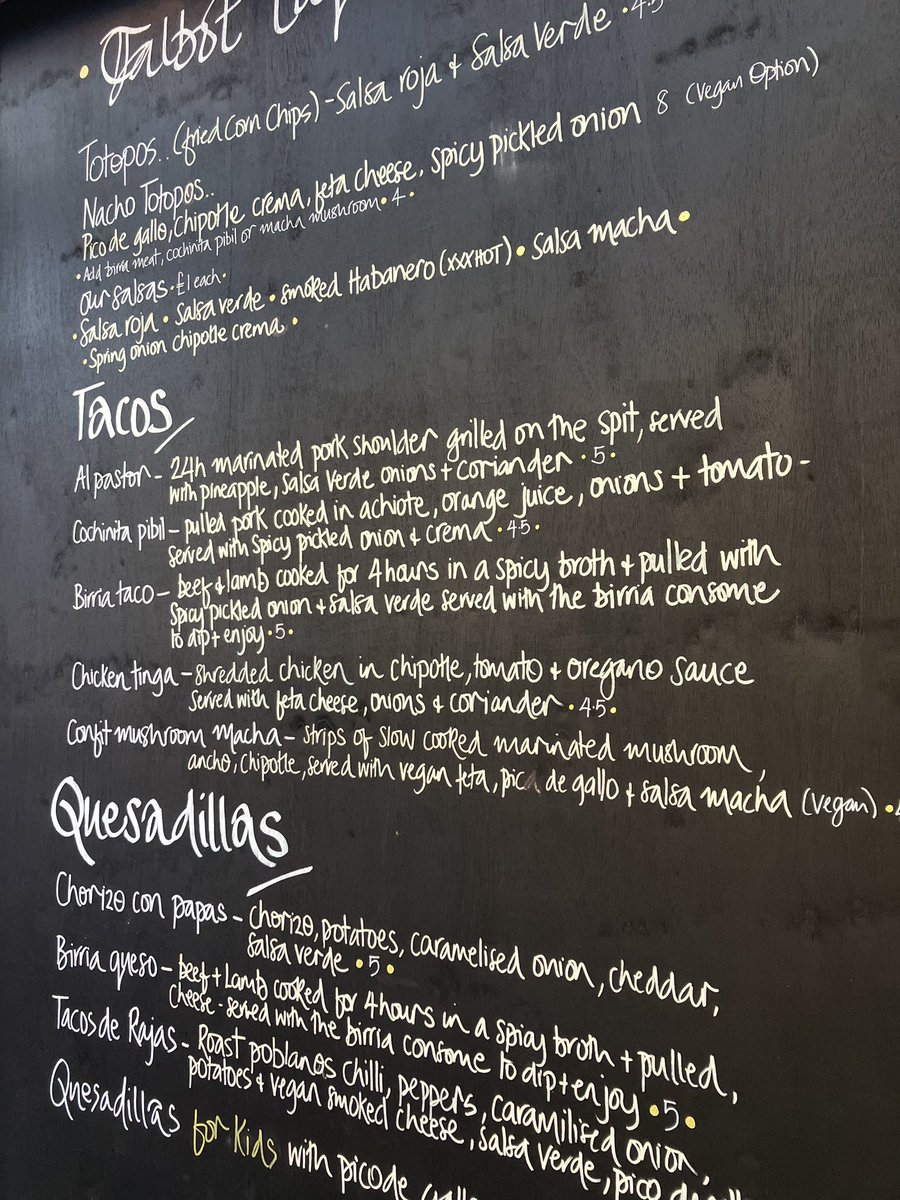 • Talbot
Totopos.. (fried corn chips) - Salsa roja + Salsa verde • 4.5
Nacho Totopos..
Pico de gallo, Chipotle crema, feta cheese, spicy pickled onion 8 (Vegan Option)
• Add birria meat, cochinita pibil or macha mushroom • 4 •
Our salsas • £1 each •
• Salsa roja • Salsa verde • smoked Habanero (XXXHOT) • Salsa macha •
• Spring onion chipotle crema •
Tacos
Al pastor - 24h marinated pork shoulder grilled on the spit, served
with pineapple, salsa verde onions + coriander • 5 •
Cochinita pibil - pulled pork cooked in achiote, orange juice, onions + tomato -
served with spicy pickled onion & crema • 4.5 •
Birria taco - beef + lamb cooked for 4 hours in a spicy broth + pulled with
spicy pickled onion + salsa verde served with the birria consome
to dip + enjoy • 5 •
Chicken tinga - shredded chicken in chipotle, tomato + oregano sauce
served with feta cheese, onions & coriander • 4.5 •
Confit mushroom macha - strips of slow cooked marinated mushroom,
ancho, chipotle, served with vegan feta, pica de gallo + salsa macha (vegan) •
Quesadillas
Chorizo con papas - chorizo, potatoes, caramelised onion, cheddar,
salsa verde • 5 •
Birria queso - beef + lamb cooked for 4 hours in a spicy broth + pulled,
cheese - served with the birria consome to dip + enjoy • 5 •
Tacos de Rajas - Roast poblanos chilli, peppers, caramilised onion,
potatoes & vegan smoked cheese, salsa verde, pico
Quesadillas for kids with pico de